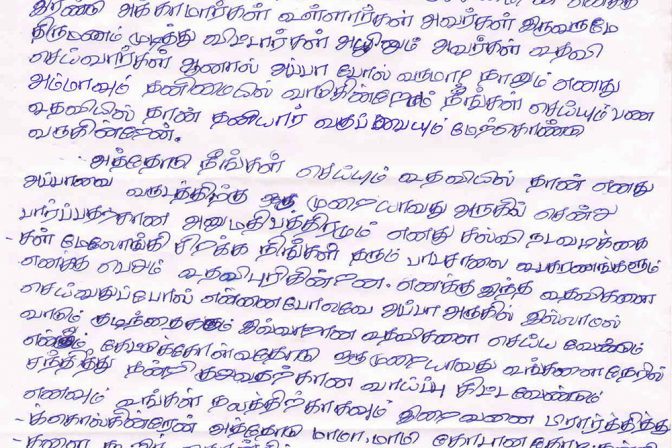 அக்காமார்கள் உள்ளார்கள் அவர்கள் இருவருமே
திருமணம் முடித்து விட்டார்கள் அதிலும் அவர்கள் உதவி
செய்வார்கள் ஆனால் அப்பா போல் வருமா? நானும் எனது
அம்மாவும் தனிமையில் வாழ்கின்றோம் நீங்கள் செய்யும் பண
உதவியில் தான் தனியார் வகுப்பையும் மேற்கொண்டு
வருகின்றேன்.
அத்தோடு நீங்கள் செய்யும் உதவியில் தான் எனது
அப்பாவை வருடத்திற்கு ஒரு முறையாவது அருகில் சென்று
பார்ப்பதற்கான அனுமதிபத்திரமும் எனது கல்வி நடவடிக்கை
-கள் மேலோங்கி சிறக்க நீங்கள் தரும் பாடசாலை உபகரணங்களும்
எனக்கு வெகும் உதவிபுரிகின்றன. எனக்கு இந்த உதவிகளை
செய்வதுப்போல் என்னைபோலவே அப்பா அருகில் இல்லாமல்
வாடும் குழந்தைகளும் இவ்வாறான உதவிகளை செய்ய வேண்டும்
என்றும் கேட்டுக்கொள்வதோடு ஒருமுறையாவது உங்களை நேரில்
சந்தித்து நன்றி கூறுவதற்கான வாய்ப்பு கிட்ட வேண்டும்
எனவும் உங்கள் நலத்திற்காகவும் இறைவனை பிரார்த்தித்து
-க்கொள்கின்றேன் அத்தோடு மாமா, மாமி